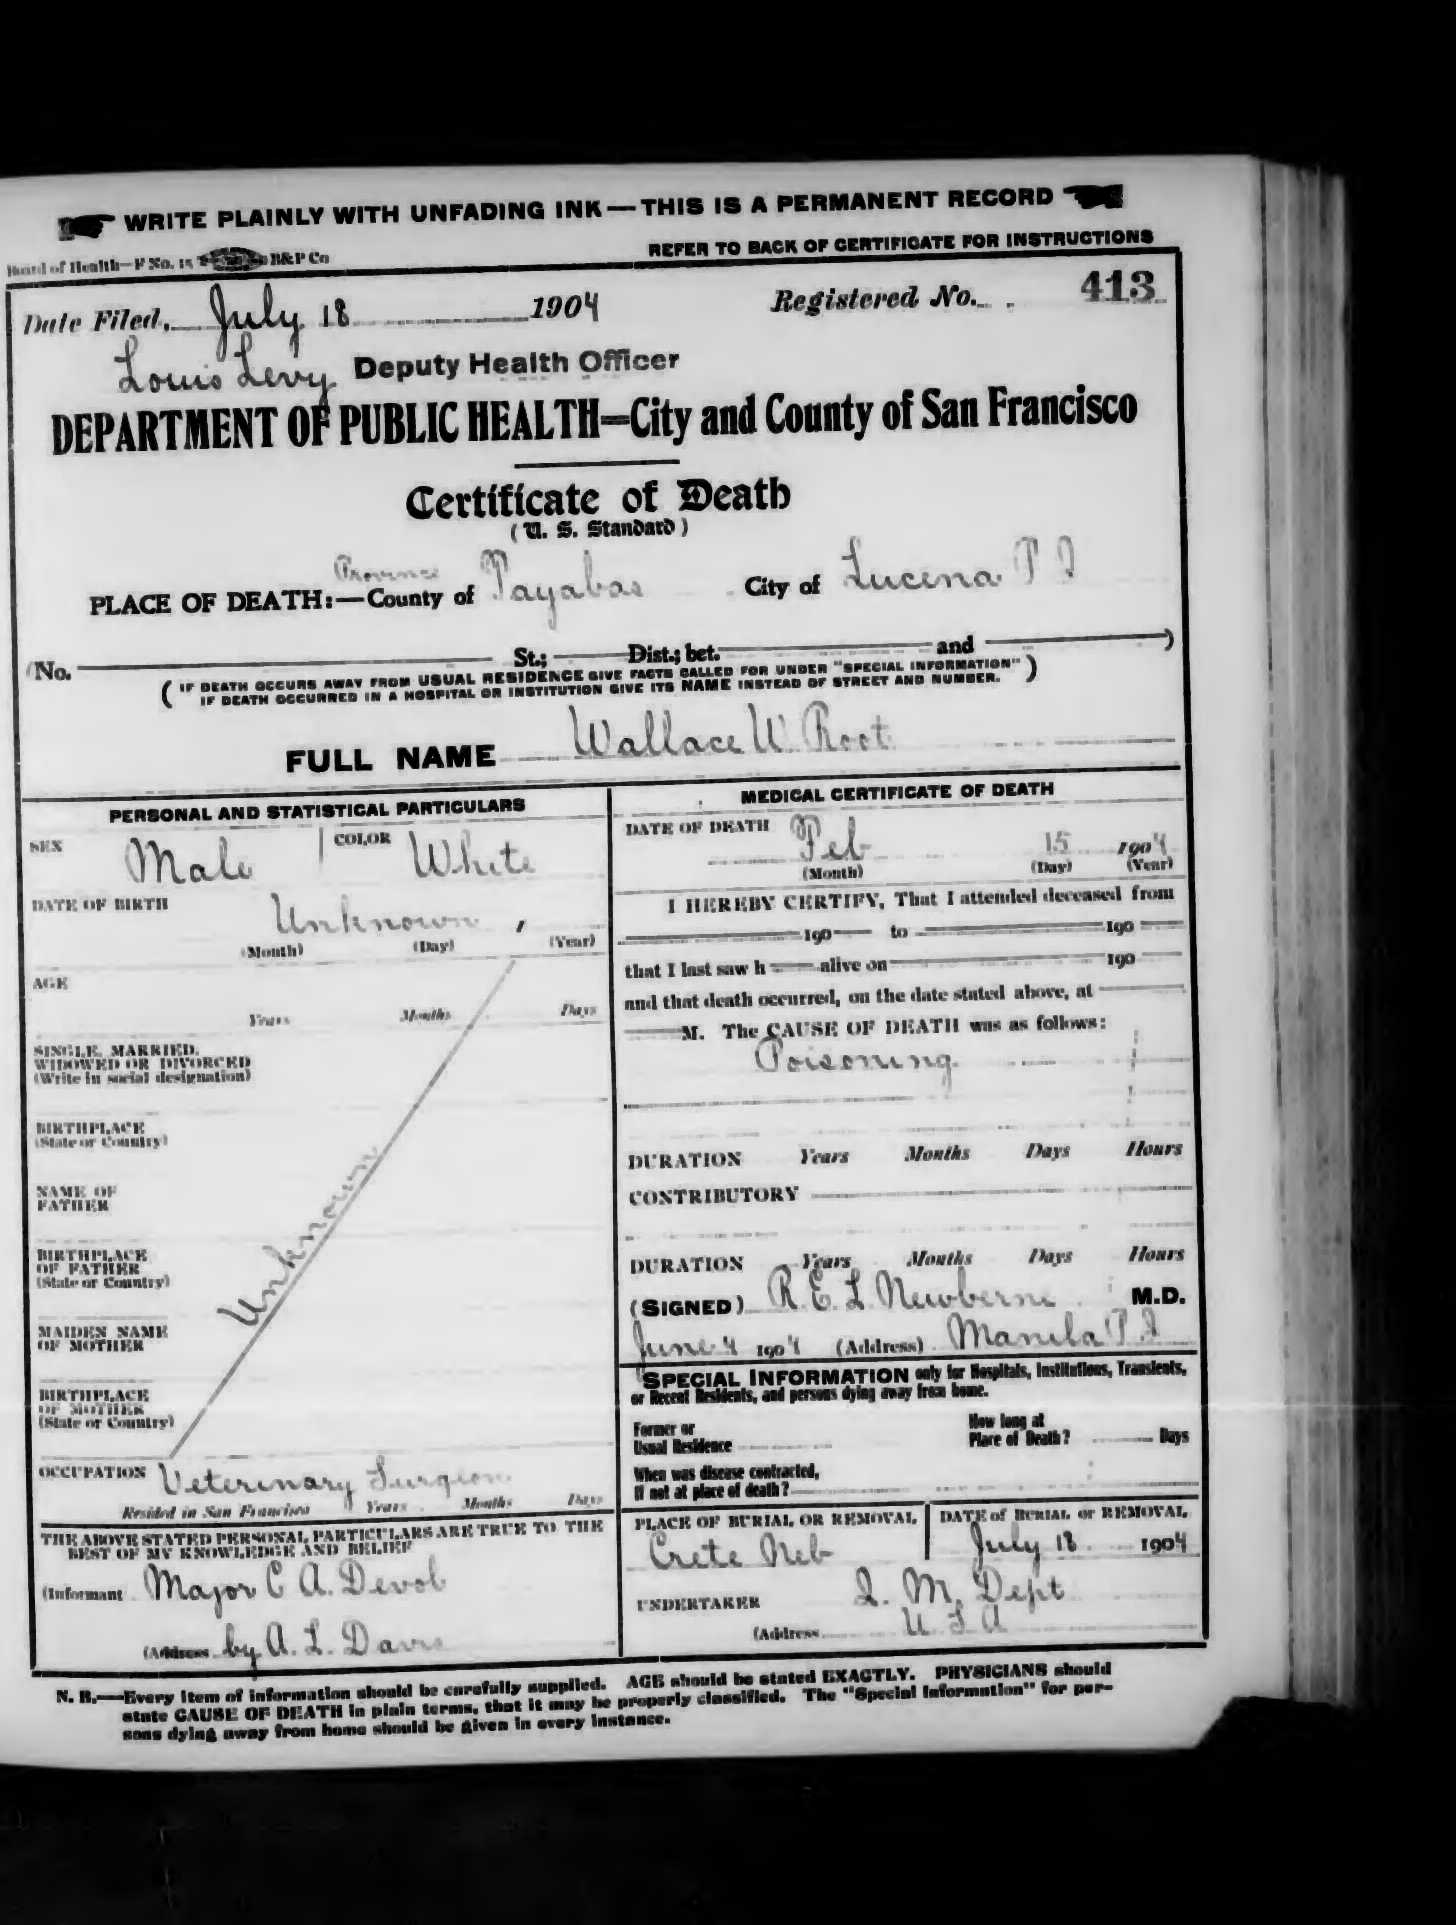 WRITE PLAINLY WITH UNFADING INK—THIS IS A PERMANENT RECORD
Board of Health—F No. 15 B&P Co
REFER TO BACK OF CERTIFICATE FOR INSTRUCTIONS
Date Filed, July 18 1904 Registered No. 413
Louis Levy Deputy Health Officer
DEPARTMENT OF PUBLIC HEALTH=City and County of San Francisco
Certificate of Death
(U. S. Standard)
Province
PLACE OF DEATH:—County of Tayabas City of Lucena P I
(No. St.; Dist.; bet. and )
( IF DEATH OCCURS AWAY FROM USUAL RESIDENCE GIVE FACTS CALLED FOR UNDER "SPECIAL INFORMATION" )
IF DEATH OCCURRED IN A HOSPITAL OR INSTITUTION GIVE ITS NAME INSTEAD OF STREET AND NUMBER.
FULL NAME Wallace W. Root
PERSONAL AND STATISTICAL PARTICULARS
SEX Male COLOR White
DATE OF BIRTH Unknown
(Month) (Day) (Year)
AGE
Years Months Days
SINGLE, MARRIED,
WIDOWED OR DIVORCED
(Write in social designation)
BIRTHPLACE
(State or Country)
NAME OF
FATHER
Unknown
BIRTHPLACE
OF FATHER
(State or Country)
MAIDEN NAME
OF MOTHER
BIRTHPLACE
OF MOTHER
(State or Country)
OCCUPATION Veterinary Surgeon
Resided in San Francisco Years Months Days
THE ABOVE STATED PERSONAL PARTICULARS ARE TRUE TO THE
BEST OF MY KNOWLEDGE AND BELIEF
(Informant Major C A. Devol
(Address by A. L. Davis
MEDICAL CERTIFICATE OF DEATH
DATE OF DEATH Feb 15 1904
(Month) (Day) (Year)
I HEREBY CERTIFY, That I attended deceased from
190 to 190
that I last saw h alive on 190
and that death occurred, on the date stated above, at
M. The CAUSE OF DEATH was as follows:
Poisoning
DURATION Years Months Days Hours
CONTRIBUTORY
DURATION Years Months Days Hours
(SIGNED) R. E. L. Newberne M.D.
June 4 1904 (Address) Manila P I
SPECIAL INFORMATION only for Hospitals, Institutions, Transients,
or Recent Residents, and persons dying away from home.
Former or
Usual Residence
How long at
Place of Death? Days
When was disease contracted,
If not at place of death?
PLACE OF BURIAL OR REMOVAL DATE of BURIAL or REMOVAL
Crete Neb July 18 1904
UNDERTAKER Q. M. Dept
(Address U S A
N. B.—Every item of information should be carefully supplied. AGE should be stated EXACTLY. PHYSICIANS should
state CAUSE OF DEATH in plain terms, that it may be properly classified. The "Special Information" for per-
sons dying away from home should be given in every instance.